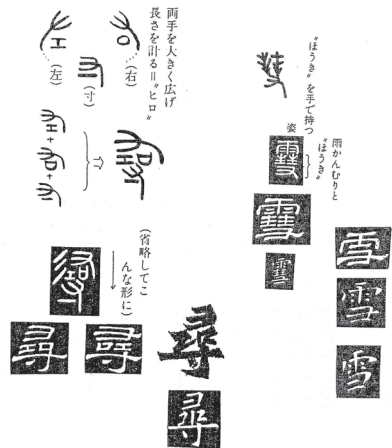 〝ほうき〟を手で持つ
姿
雨かんむりと
〝ほうき〟
雪
雪
雪
両手を大きく広げ
長さを計る＝〝ヒロ〟
(右)
(寸)
(左)
+
+
(省略してこ
んな形に)
尋
尋
尋
尋